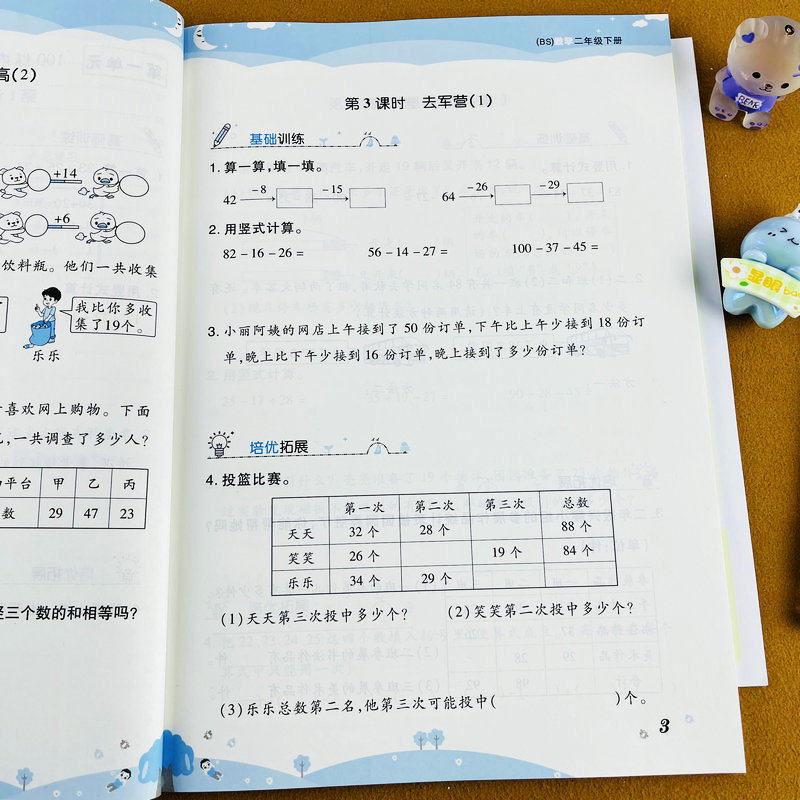 高(2)
+14
+6
饮料瓶。他们一共收集
我比你多收
集了19个。
乐乐
喜欢网上购物。下面
,一共调查了多少人?
平台 甲 乙 丙
数 29 47 23
三个数的和相等吗?
(BS)数学二年级下册
第3课时 去军营(1)
基础训练
1. 算一算,填一填。
42 -8 -15 64 -26 -29
2. 用竖式计算。
82-16-26= 56-14-27= 100-37-45=
3. 小丽阿姨的网店上午接到了50份订单,下午比上午少接到18份订
单,晚上比下午少接到16份订单,晚上接到了多少份订单?
培优拓展
4. 投篮比赛。
第一次 第二次 第三次 总数
天天 32个 28个 88个
笑笑 26个 19个 84个
乐乐 34个 29个
(1)天天第三次投中多少个? (2)笑笑第二次投中多少个?
(3)乐乐总数第二名,他第三次可能投中( )个。
3